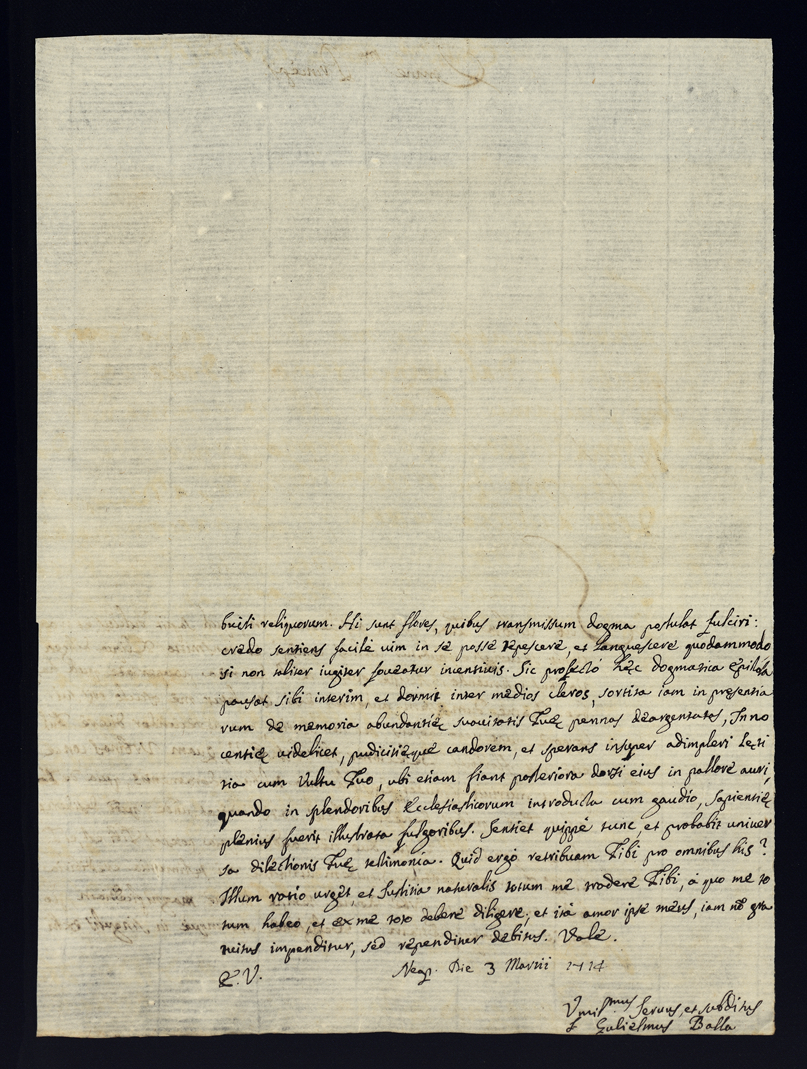 buisti reliquorum. Hi sunt flores, quibus transmissum dogma postulat fulciri:
credo sentiens facilè uim in se posse tepescere, et languescere quodammodo
si non taliter iugiter foueatur inventiuis. Sic profectò hęc dogmatica Epistola
pausat sibi interim, et dormit inter medios cleros, sortita iam in pręsentia
rum de memoria abundantię suauitatis Tuę pennas deargentatas, Inno
centię uidelicet, pudicitięque candorem, et sperans insuper adimpleri Lęti
tia cum Vultu Tuo, ubi etiam fiant posteriora dorsi eius in pallore auri,
quando in splendoribus Ecclesiasticorum introducta cum gaudio, sapientię
plenius fuerit illustrata fulgoribus. Sentiet quippe tunc, et probabit univer
sa dilectionis Tuę testimonia. Quid ergò retribuam Tibi pro omnibus his?
Illum ratio urget, et Iustitia naturalis totum me tradere Tibi, à quo me to
tum habeo, et ex me toto debere diligere; et ità amor ipse meus, iam nō gra
tuitus impenditur, sed rependitur debitus. Vale.
E. V. Neap. Die 3 Martii 1714
Vmilmus seruus, et subditus
f Gulielmus Balla